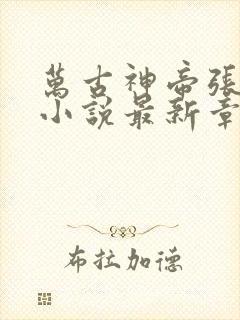 萬古神帝張
小說最新章
布拉加德